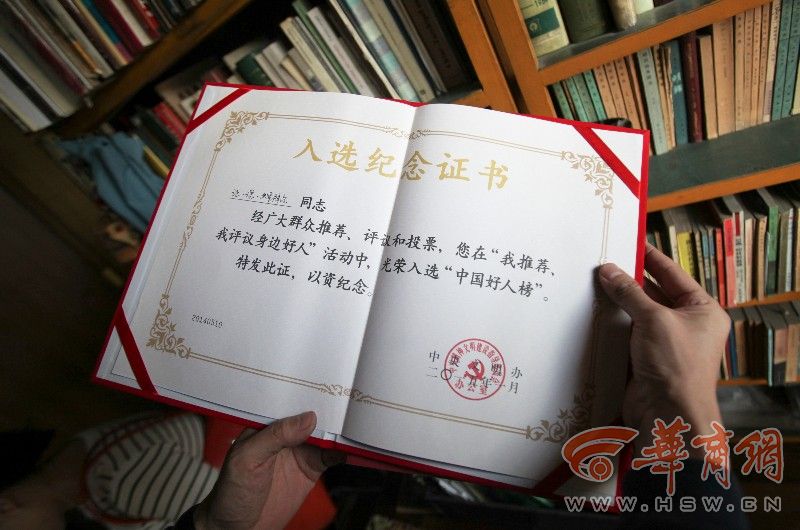 入选纪念证书
同志
经广大群众推荐、评议和投票，您在“我推荐、
我评议身边好人”活动中，光荣入选“中国好人榜”。
特发此证，以资纪念。
20140510
中
办
月
華商網
WWW.HSW.CN